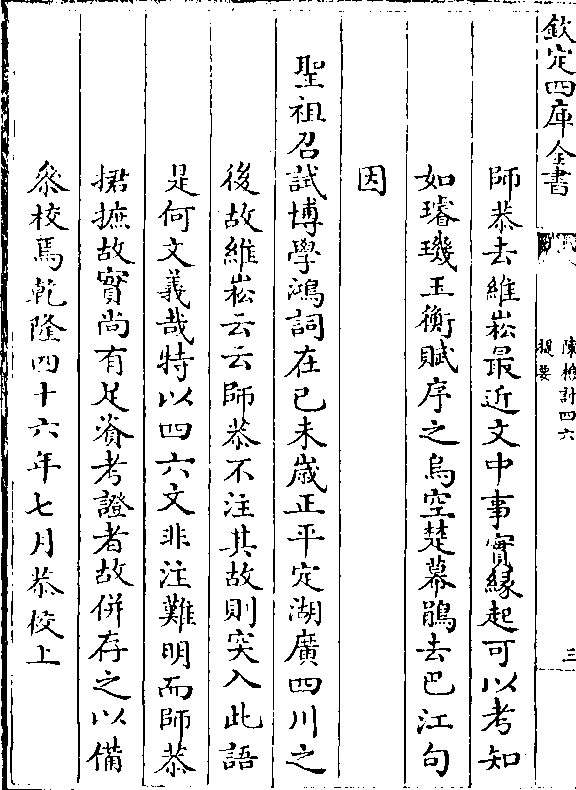 欽定四庫全書
陳檢討四六
提要
三
師恭去維崧最近文中事實緣起可以考知
如璿璣玉衡賦序之烏空楚幕鵑去巴江句
因
聖祖召試博學鴻詞在己未歲正平定湖廣四川之
後故維崧云云師恭不注其故則突入此語
是何文義哉特以四六文非注難明而師恭
捃摭故實尚有足資考證者故併存之以備
叅校焉乾隆四十六年七月恭校上